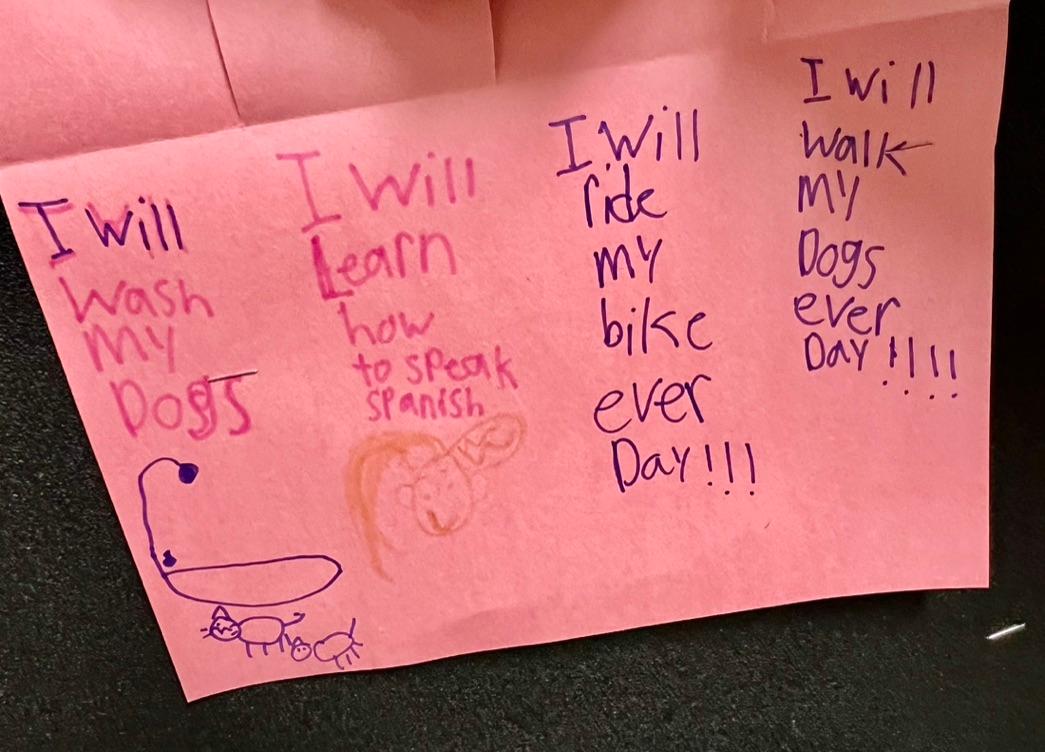 I will
wash
my
Dogs
I will
Learn
how
to speak
spanish
I will
ride
my
bike
ever
Day!!!
I will
walk
my
Dogs
ever
Day!!!!